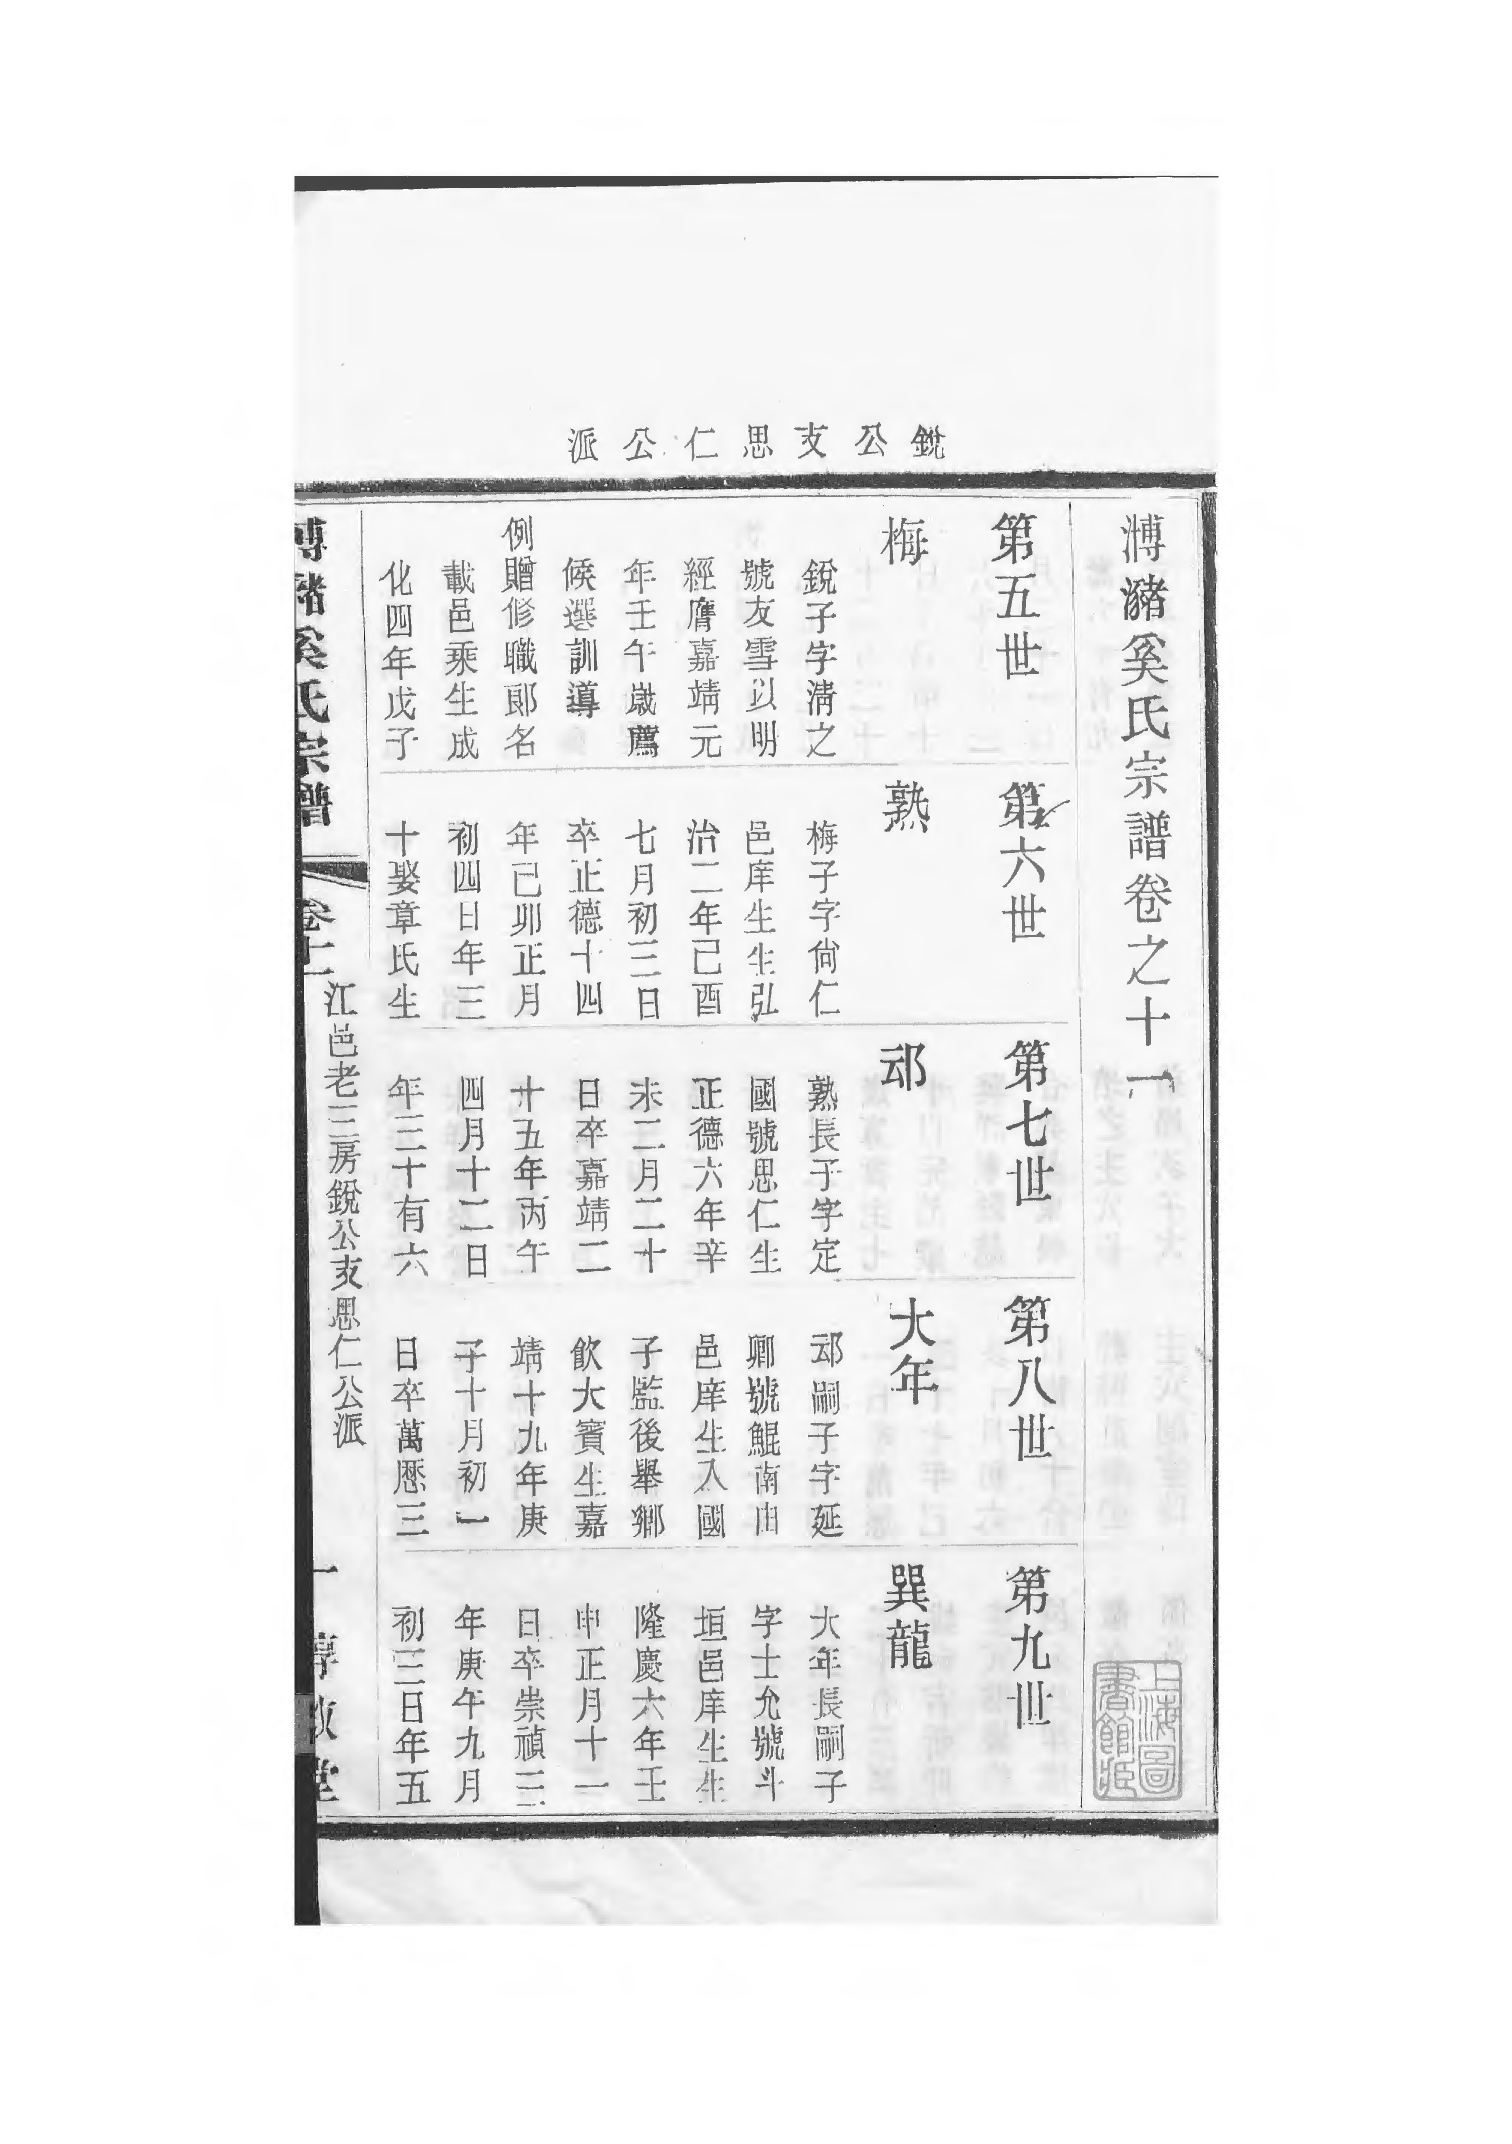 銳公支思仁公派
溥瀦奚氏宗譜卷之十一
第五世
梅
銳子字清之
號友雪以明
經膺嘉靖元
年壬午歲薦
候選訓導
例贈修職郎名
載邑乘生成
化四年戊子
第六世
熟
梅子字尙仁
邑庠生生弘
治二年己酉
七月初三日
卒正德十四
年己卯正月
初四日年三
十娶章氏生
第七世
邧
熟長子字定
國號思仁生
正德六年辛
未二月二十
日卒嘉靖二
十五年丙午
四月十二日
年三十有六
第八世
大年
邧嗣子字延
卿號鯤南由
邑庠生入國
子監後舉鄉
飲大賓生嘉
靖十九年庚
子十月初一
日卒萬厯三
第九世
巽龍
大年長嗣子
字士允號斗
垣邑庠生生
隆慶六年壬
申正月十一
日卒崇禎三
年庚午九月
初三日年五
溥瀦奚氏宗譜
卷十一
江邑老三房銳公支思仁公派
一
上海圖書館藏